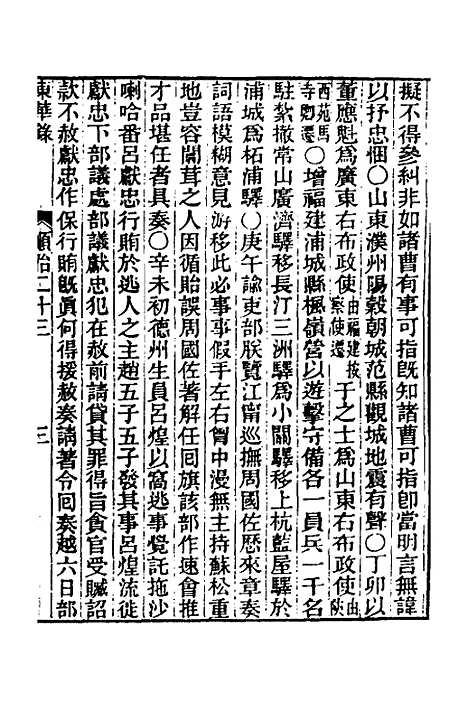 擬不得參糾非如諸曹有事可指既知諸曹可指卽當明言無諱
以抒忠悃〇山東濮州陽穀朝城范縣觀城地震有聲〇丁卯以
董應魁爲廣東右布政使由福建按察使遷于之士爲山東右布政使由陝
西苑馬寺卿遷〇增福建浦城縣楓嶺營以遊擊守備各一員兵一千名
駐紮撤常山廣濟驛移長汀三洲驛爲小關驛移上杭藍屋驛於
浦城爲柘浦驛〇庚午諭吏部朕覽江甯巡撫周國佐歷來章奏
詞語模糊意見游移此必事事假手左右胷中漫無主持蘇松重
地豈容闒茸之人因循貽誤周國佐著解任回旗該部作速會推
才品堪任者具奏〇辛未初德州生員呂煌以窩逃事覺託拖沙
喇哈番呂獻忠行賄於逃人之主趙五子五子發其事呂煌流徙
獻忠下部議處部議獻忠犯在赦前請貸其罪得旨貪官受贓詔
款不赦獻忠作保行賄既眞何得援赦奏請著令回奏越六日部
東華錄
順治二十三
三